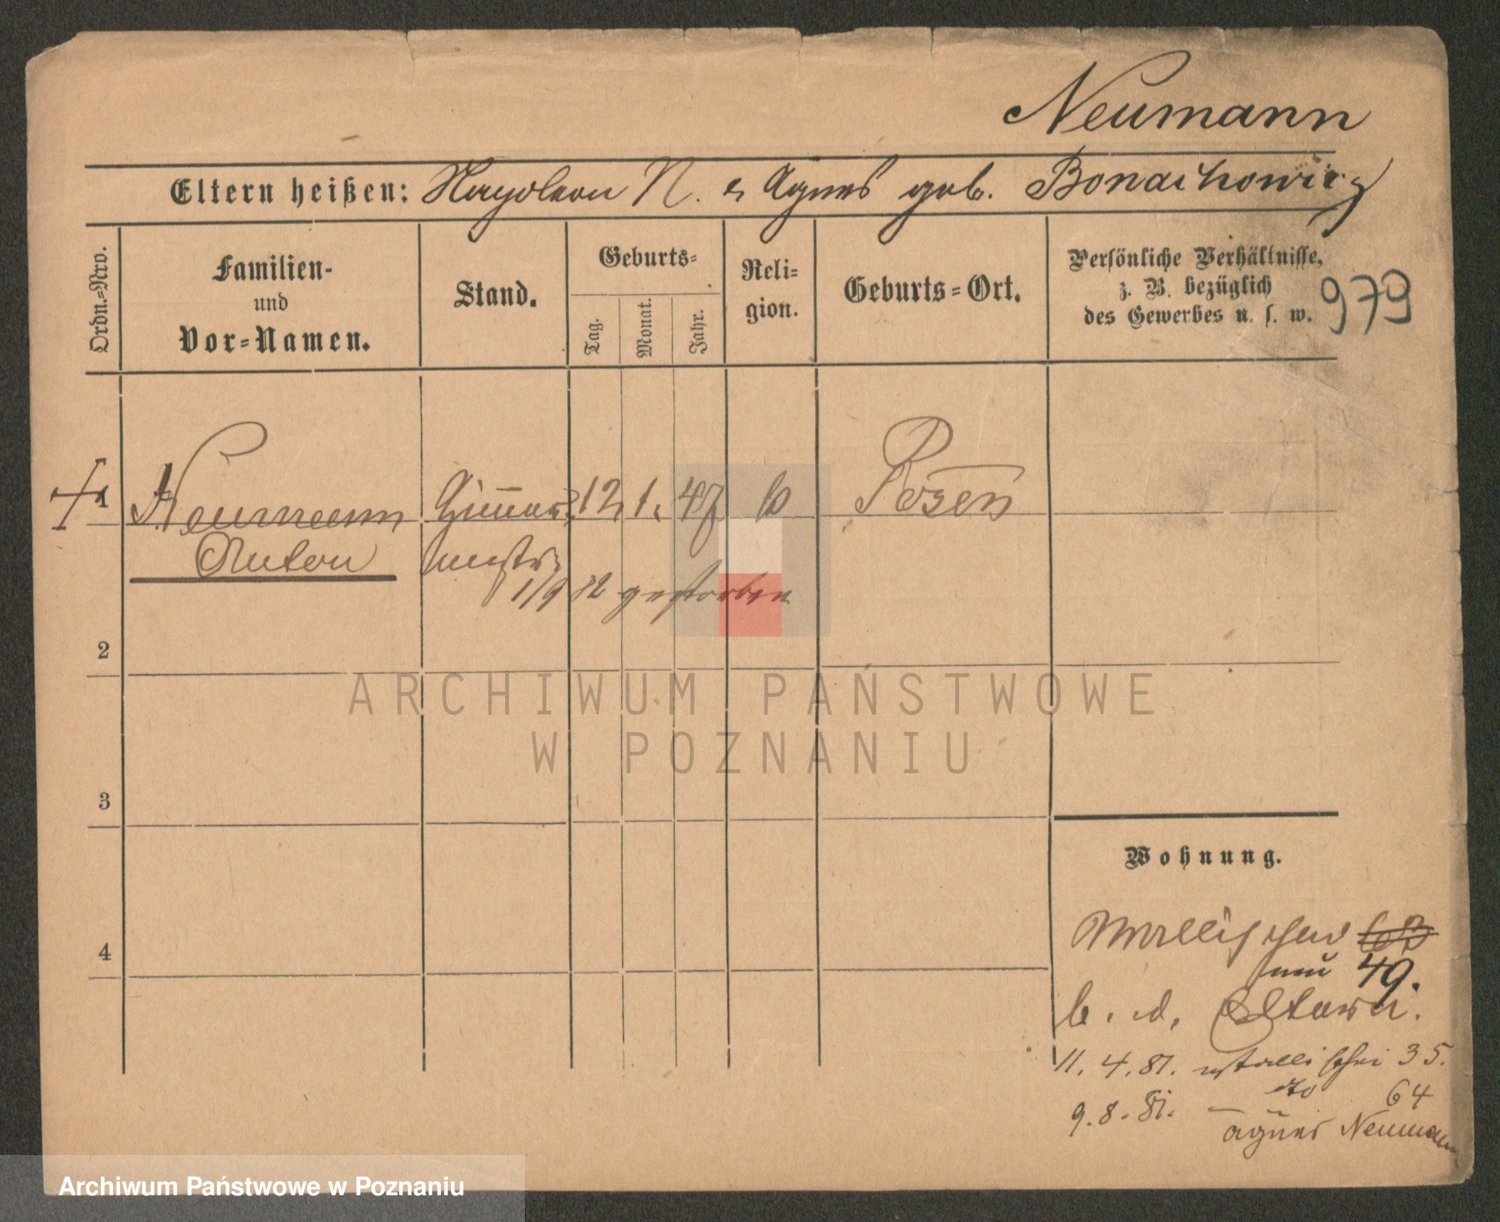 Neumann
Eltern heißen: Napoleon N. & Agnes geb. Bonachowicz
Ordn.=Nro.
Familien-
und
Vor=Namen.
Stand.
Geburts=
Tag.
Monat.
Jahr.
Reli=
gion.
Geburts=Ort.
Persönliche Verhältnisse,
z. B. bezüglich
des Gewerbes u. s. w.
979
1
Neumann
Anton
12. 1. 47
Posen
1/9 82 gestorben
2
3
4
ARCHIWUM PAŃSTWOWE
W POZNANIU
Wohnung.
Wallischei 63
neu 49.
b. d. Eltern.
11. 4. 81. Wallischei 35.
9. 8. 81. — do 64
Agnes Neumann
Archiwum Państwowe w Poznaniu